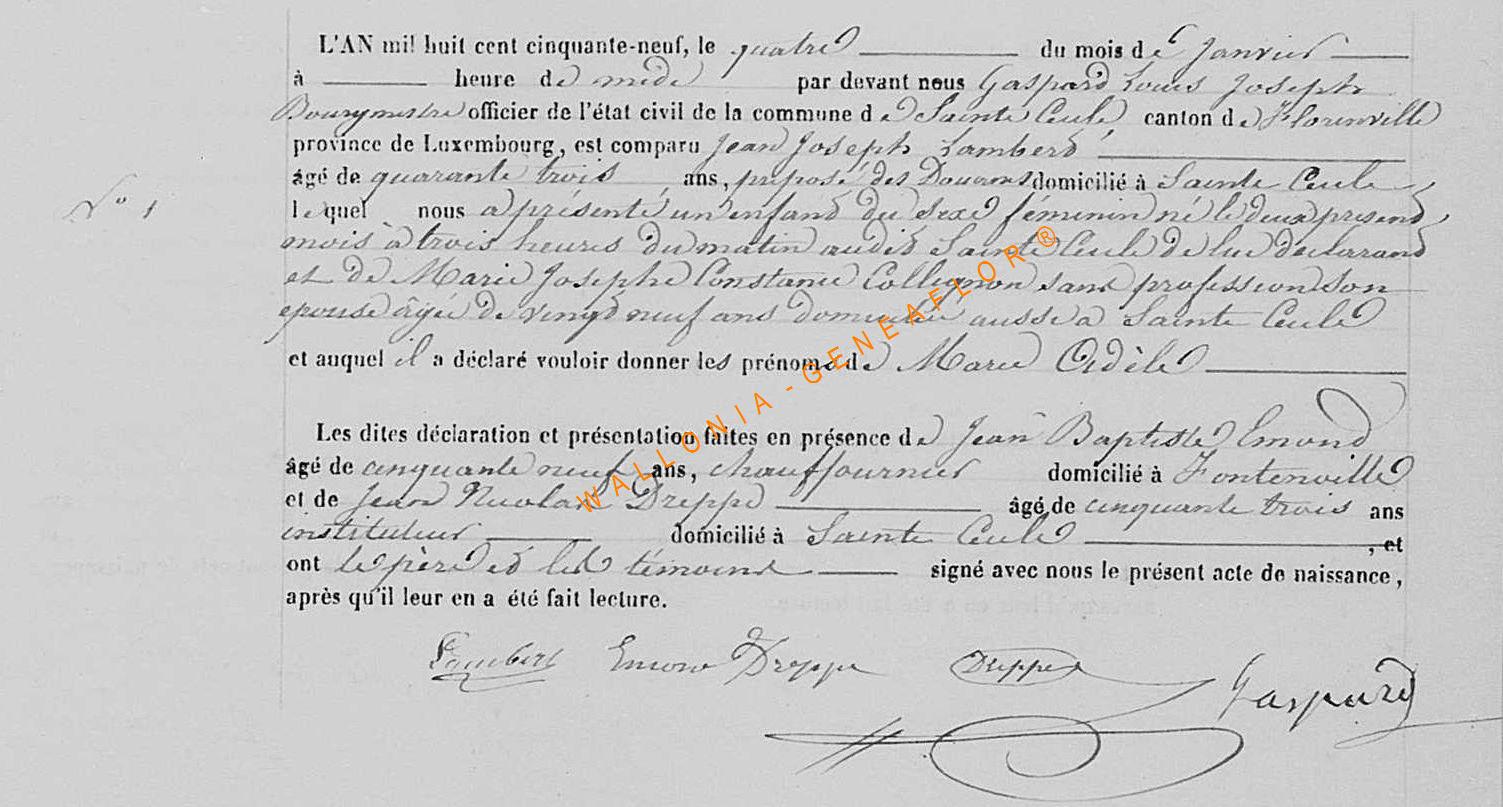 L'AN mil huit cent cinquante-neuf, le quatre du mois de Janvier
à heure de midi par devant nous Gaspard Louis Joseph
Bourgmestre officier de l'état civil de la commune de Sainte Cecile canton de Florenville
province de Luxembourg, est comparu Jean Joseph Lambert
âgé de quarante trois ans, préposé des Douanes domicilié à Sainte Cecile
N° 1
lequel nous a présenté un enfant du sexe féminin né le deux présent
mois à trois heures du matin audit Sainte Cecile de lui déclarant
et de Marie Josephe Constance Collignon sans profession son
épouse âgée de vingt neuf ans domiciliée aussi à Sainte Cecile
et auquel il a déclaré vouloir donner les prénoms de Marie Adèle
Les dites déclaration et présentation faites en présence de Jean Baptiste Emond
âgé de cinquante neuf ans, chauffournier domicilié à Fontenville
et de Jean Nicolas Dreppe âgé de cinquante trois ans
instituteur domicilié à Sainte Cecile, et
ont le père et les témoins signé avec nous le présent acte de naissance,
après qu'il leur en a été fait lecture.
Lambert Emond Dreppe Dreppe Gaspard
WALLONIA - GENEAFLOR ®